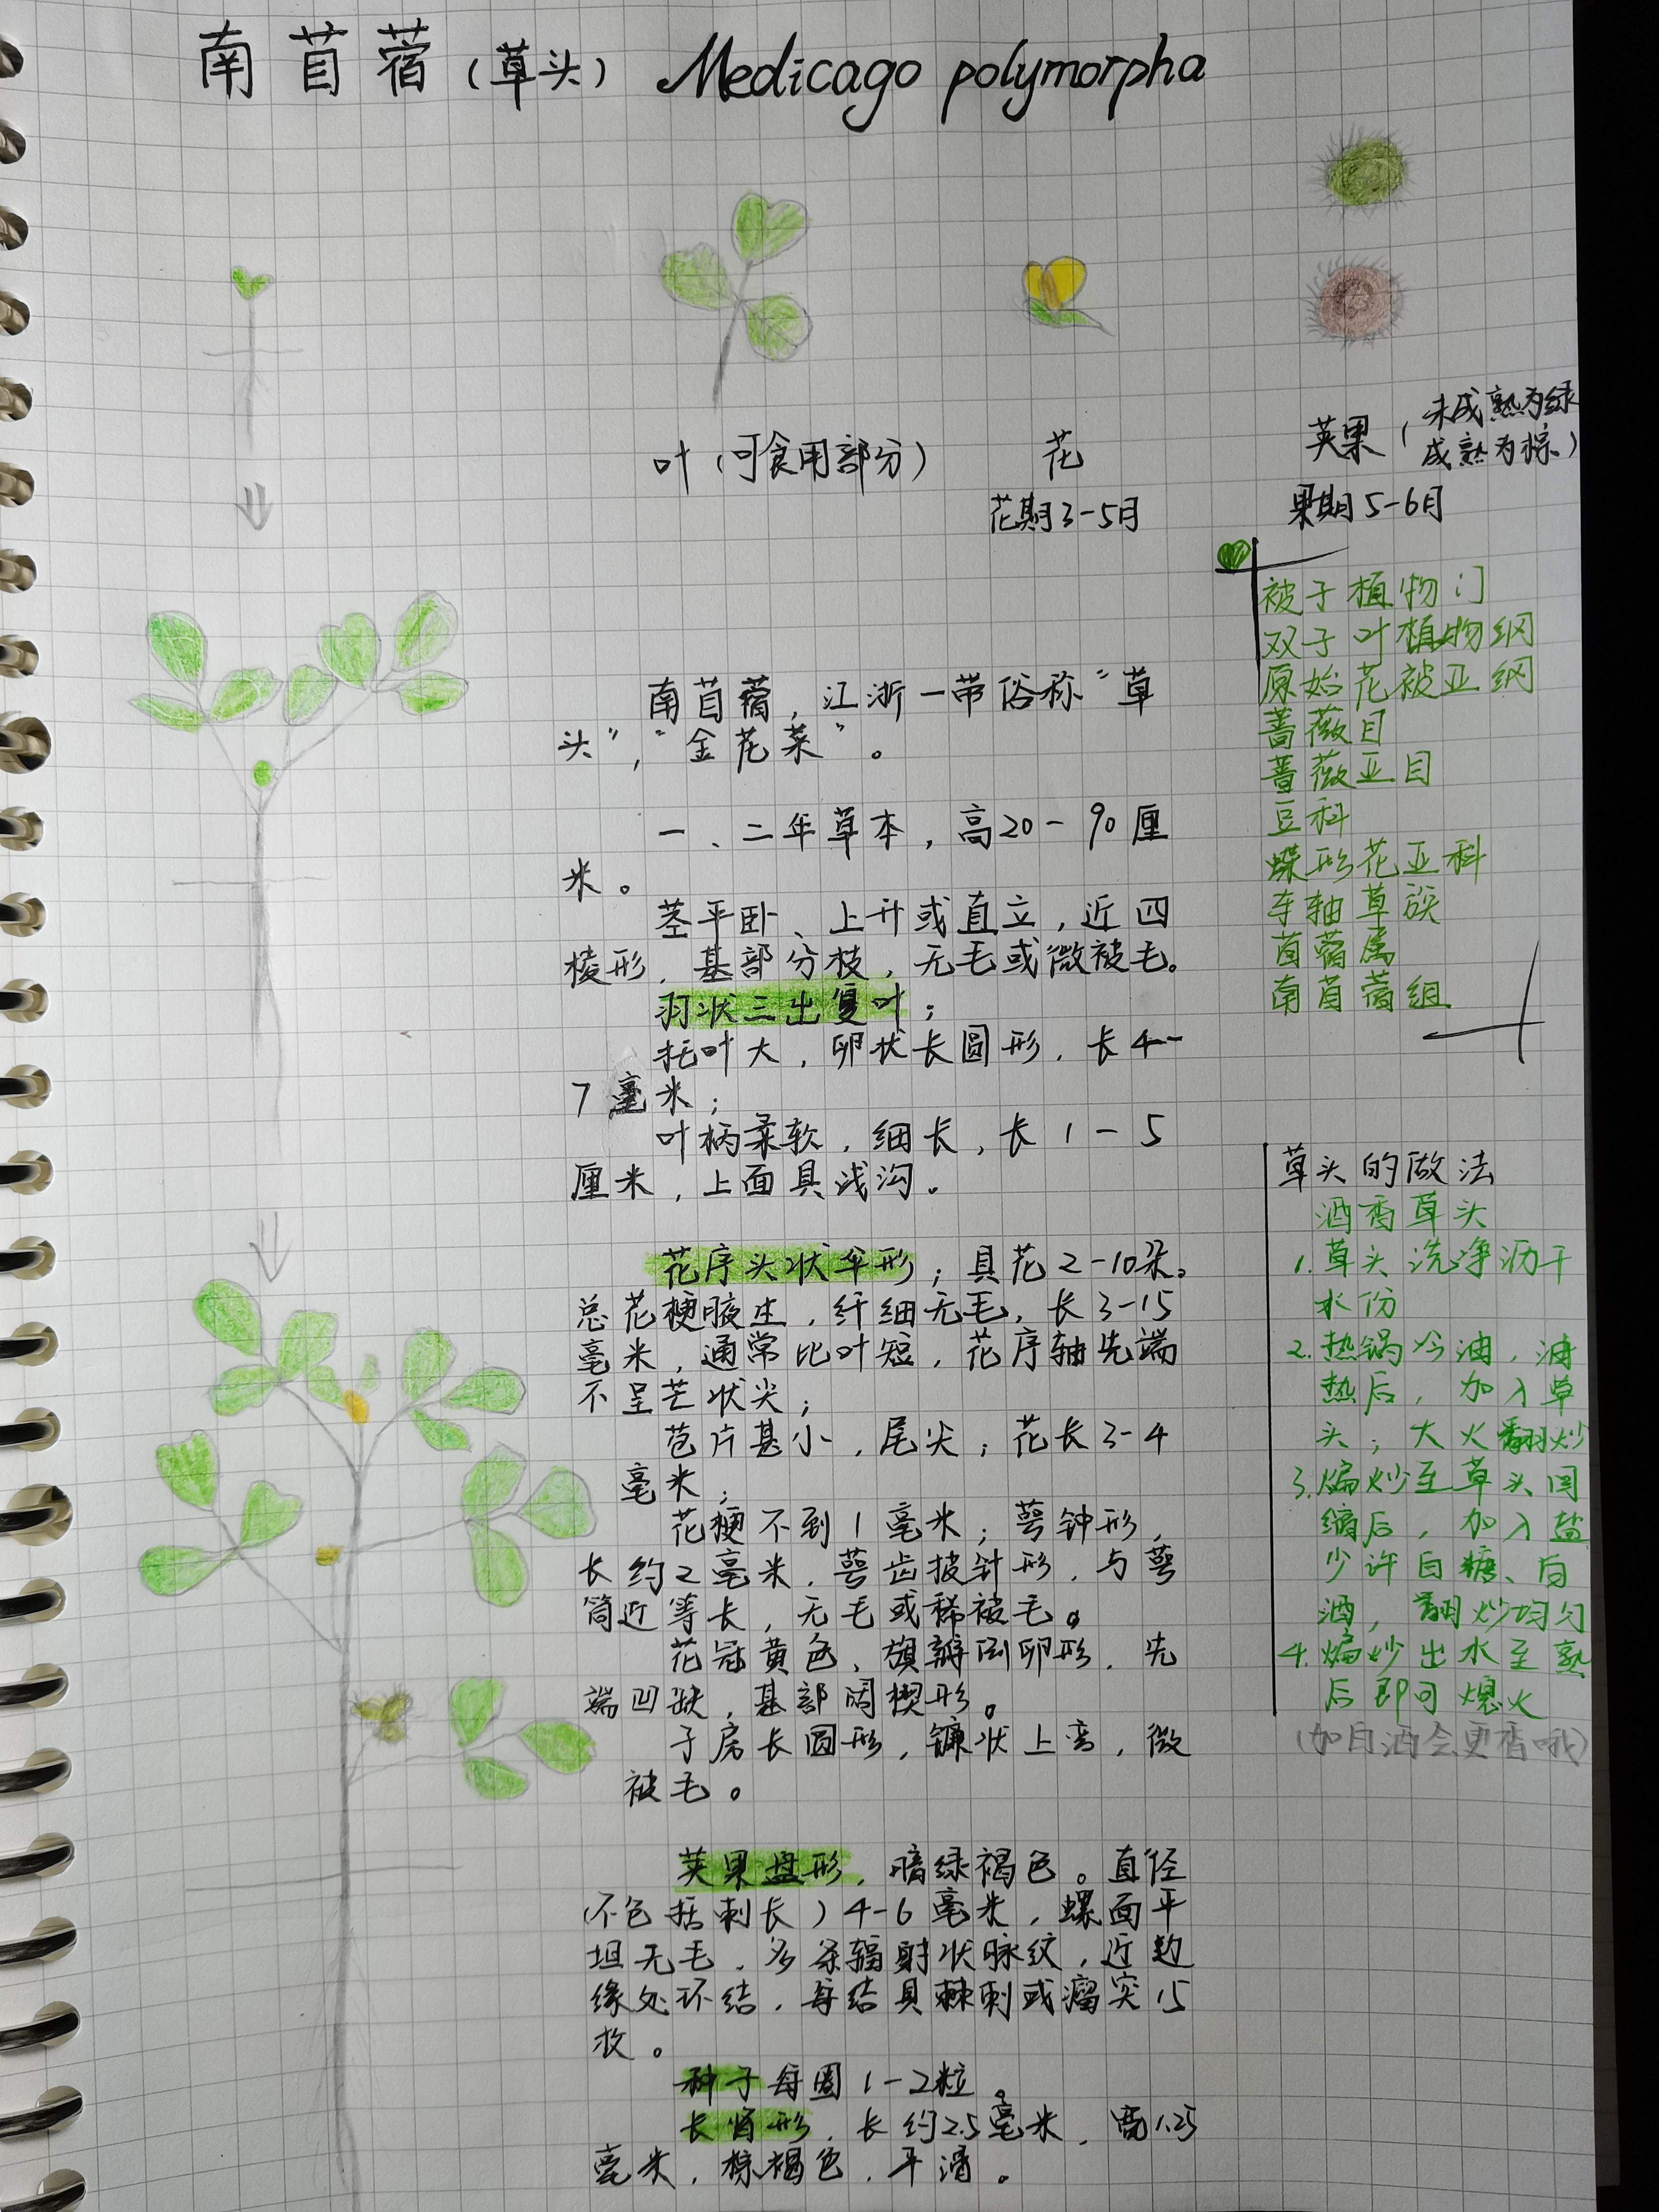 南苜蓿（草头） Medicago polymorpha
叶（可食用部分）
花
花期3-5月
荚果（未成熟为绿
成熟为棕）
果期5-6月
南苜蓿，江浙一带俗称“草
头”，“金花菜”。
一、二年草本，高20-90厘
米。
茎平卧、上升或直立，近四
棱形，基部分枝，无毛或微被毛。
羽状三出复叶；
托叶大，卵状长圆形，长4-
7毫米；
叶柄柔软，细长，长1-5
厘米，上面具浅沟。
花序头状伞形；具花2-10朵。
总花梗腋生，纤细无毛，长3-15
毫米，通常比叶短，花序轴先端
不呈芒状尖；
苞片甚小，尾尖；花长3-4
毫米；
花梗不到1毫米；萼钟形，
长约2毫米，萼齿披针形，与萼
筒近等长，无毛或稀被毛。
花冠黄色，旗瓣倒卵形，先
端凹缺，基部阔楔形。
子房长圆形，镰状上弯，微
被毛。
荚果盘形，暗绿褐色。直径
（不包括刺长）4-6毫米，螺面平
坦无毛，多条辐射状脉纹，近边
缘处环结，每结具棘刺或瘤突15
枚。
种子每圈1-2粒。
长肾形，长约2.5毫米，宽1.25
毫米，棕褐色，平滑。
被子植物门
双子叶植物纲
原始花被亚纲
蔷薇目
蔷薇亚目
豆科
蝶形花亚科
车轴草族
苜蓿属
南苜蓿组
草头的做法
酒香草头
1.草头洗净沥干
水份
2.热锅冷油，油
热后，加入草
头；大火翻炒
3.煸炒至草头回
缩后，加入盐
少许白糖、白
酒，翻炒均匀
4.煸炒出水至熟
后即可熄火
（加白酒会更香哦）